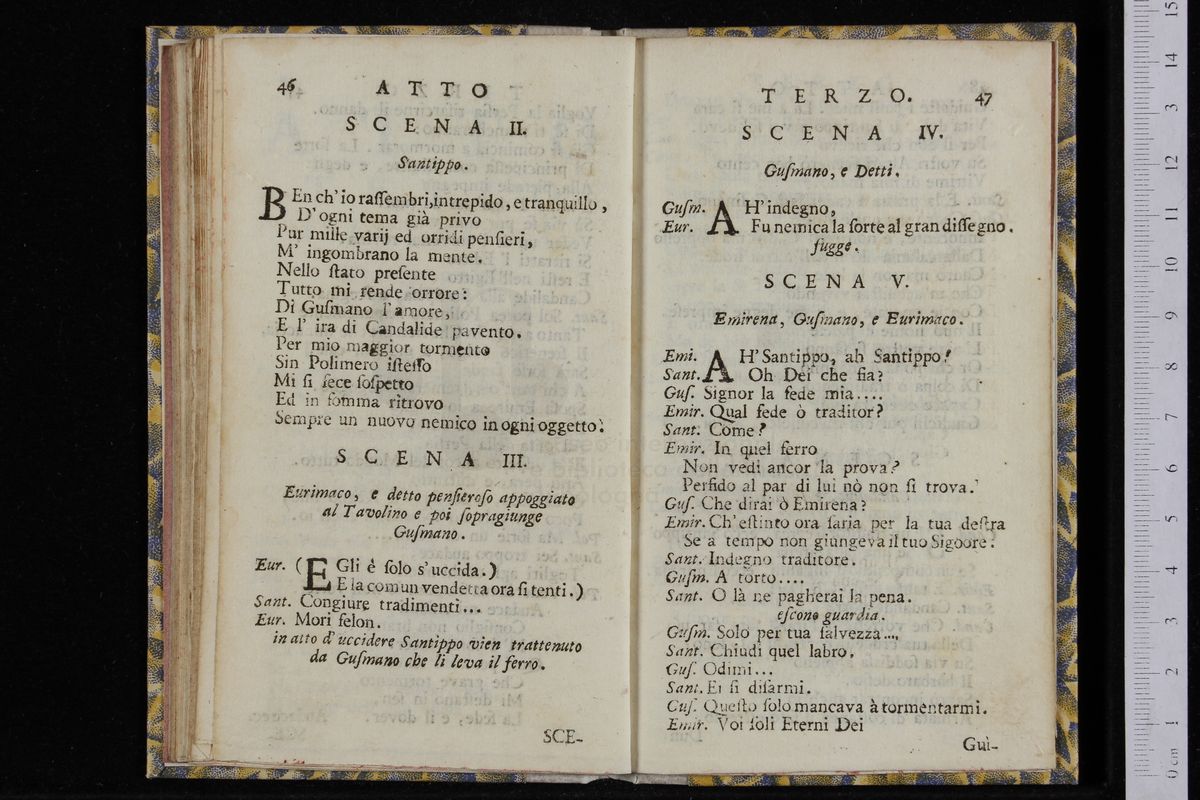 46
ATTO
SCENA II.
Santippo.
BEn ch' io raſſembri,intrepido, e tranquillo,
D' ogni tema già privo
Pur mille varij ed orridi penſieri,
M' ingombrano la mente.
Nello ſtato preſente
Tutto mi rende orrore:
Di Guſmano l' amore,
E l' ira di Candalide pavento.
Per mio maggior tormento
Sin Polimero iſteſſo
Mi ſi fece ſoſpetto
Ed in ſomma ritrovo
Sempre un nuovo nemico in ogni oggetto.
SCENA III.
Eurimaco, e detto penſieroſo appoggiato
al Tavolino e poi ſopragiunge
Guſmano.
Eur. (EGli è ſolo s' uccida.)
E la comun vendetta ora ſi tenti.)
Sant. Congiure tradimenti...
Eur. Mori felon.
in atto d' uccidere Santippo vien trattenuto
da Guſmano che li leva il ferro.
SCE-
TERZO.
47
SCENA IV.
Guſmano, e Detti.
Guſm. AH' indegno,
Eur. Fu nemica la ſorte al gran diſſegno.
fugge.
SCENA V.
Emirena, Guſmano, e Eurimaco.
Emi. AH' Santippo, ah Santippo!
Sant. Oh Dei che fia?
Guſ. Signor la fede mia....
Emir. Qual fede ò traditor?
Sant. Come?
Emir. In quel ferro
Non vedi ancor la prova?
Perfido al par di lui nò non ſi trova.
Guſ. Che dirai ò Emirena?
Emir. Ch' eſtinto ora ſaria per la tua deſtra
Se a tempo non giungeva il tuo Sigoore.
Sant. Indegno traditore.
Guſm. A torto....
Sant. O là ne pagherai la pena.
eſcono guardia.
Guſm. Solo per tua ſalvezza....
Sant. Chiudi quel labro.
Guſ. Odimi...
Sant. Ei ſi diſarmi.
Guſ. Queſto ſolo mancava à tormentarmi.
Emir. Voi ſoli Eterni Dei
Gui-